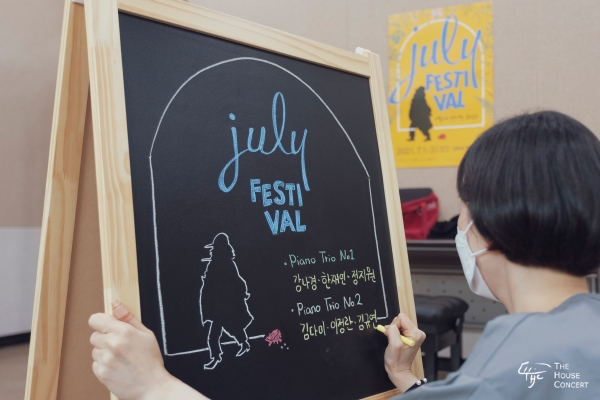 july
FESTI
VAL
• Piano Trio No1
강나경·한재민·정지원
• Piano Trio No.2
김다미·이정란·김규연
july
FESTI
VAL
THE
HOUSE
CONCERT